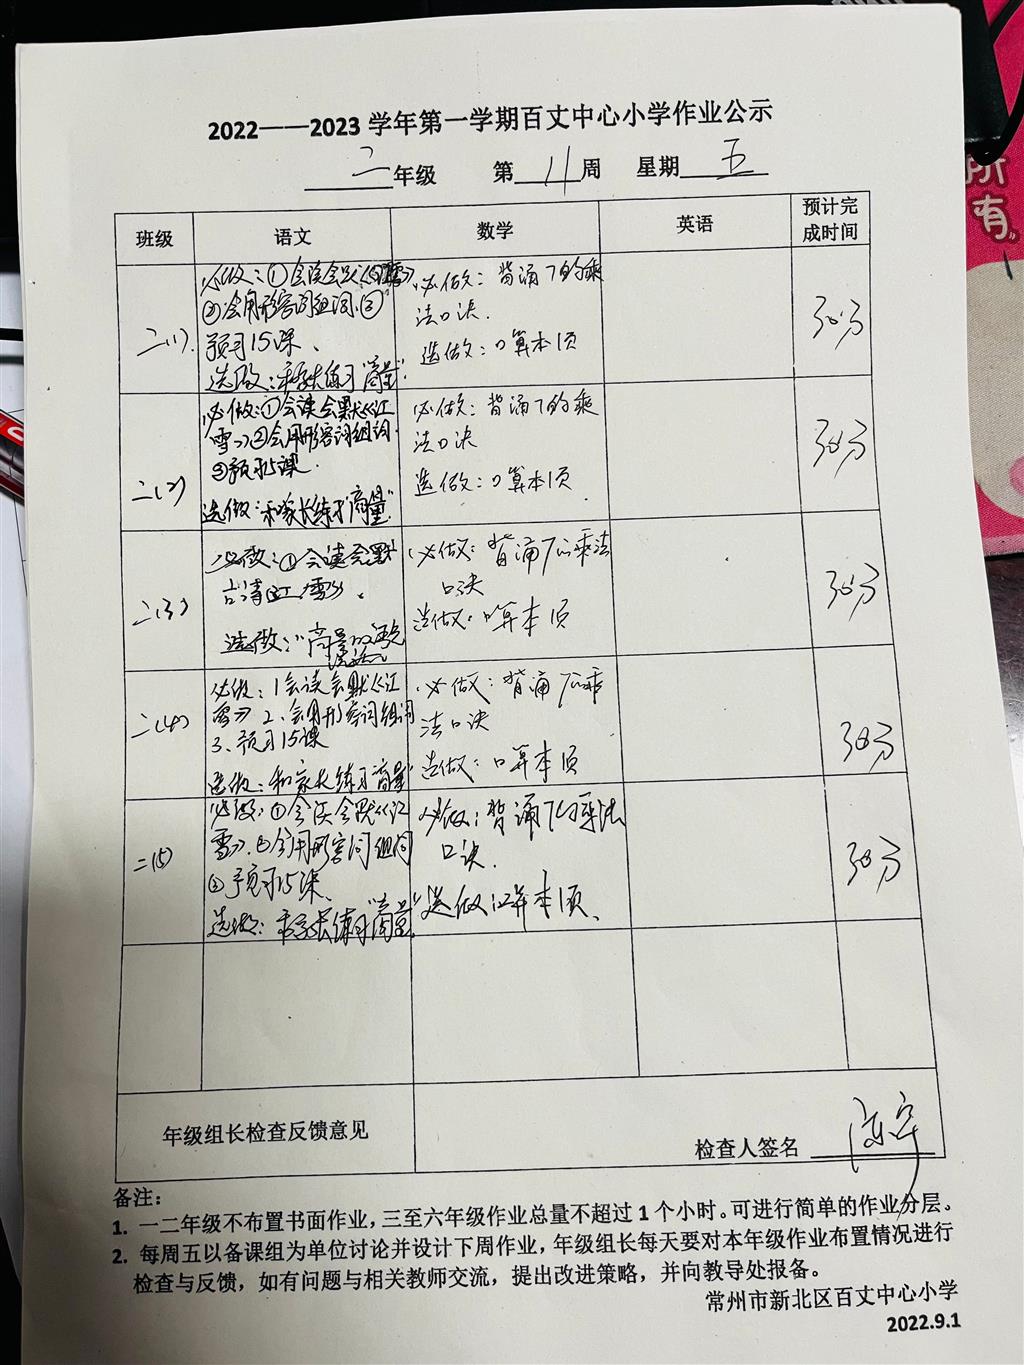 2022——2023 学年第一学期百丈中心小学作业公示
二年级 第11周 星期五
班级 语文 数学 英语 预计完
成时间
二(1)
必做:①会读会默《江雪》
②会用形容词组词.③
预习15课、
选做:和家长练习"商量".
必做:背诵7的乘
法口诀.
选做:口算本1页
30分
二(2)
必做:①会读会默《江
雪》②会用形容词组词.
③预习15课.
选做:和家长练习"商量"
必做:背诵7的乘
法口诀
选做:口算本1页
30分
二(3)
必做:①会读会默
古诗《江雪》.
选做:"商量
必做:背诵7的乘法
口诀
选做:口算本1页
30分
二(4)
必做:1会读会默《江
雪》2、会用形容词组词
3、预习15课
选做:和家长练习"商量"
必做:背诵7的乘
法口诀
选做:口算本1页
30分
二(5)
必做:①会读会默《江
雪》.②会用形容词组词
③预习15课.
选做:和家长练习"商量"
必做:背诵7的乘法
口诀.
选做:口算本1页、
30分
年级组长检查反馈意见
检查人签名
备注:
1. 一二年级不布置书面作业,三至六年级作业总量不超过1个小时。可进行简单的作业分层。
2. 每周五以备课组为单位讨论并设计下周作业,年级组长每天要对本年级作业布置情况进行
检查与反馈,如有问题与相关教师交流,提出改进策略,并向教导处报备。
常州市新北区百丈中心小学
2022.9.1
所
有